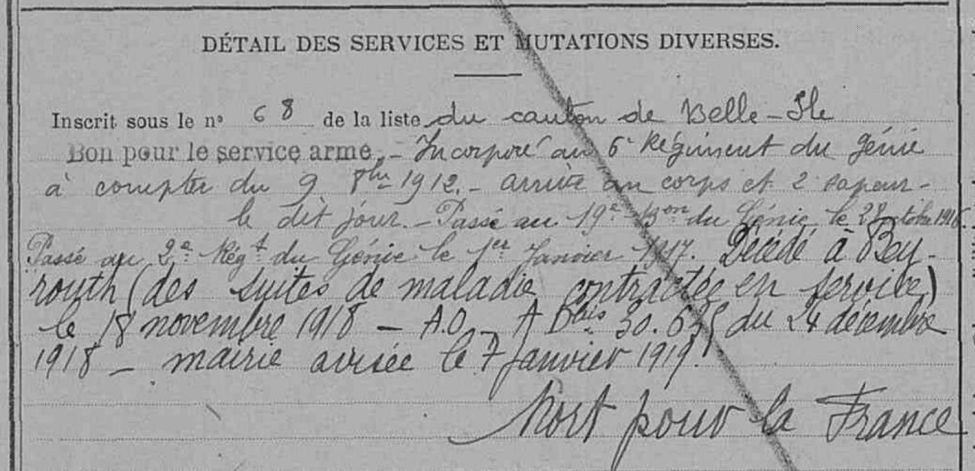 DÉTAIL DES SERVICES ET MUTATIONS DIVERSES.
Inscrit sous le n° 68 de la liste du canton de Belle-Ile
Bon pour le service armé, - Incorporé au 6e Régiment du Génie
à compter du 9 8bre 1912. - arrivé au corps et 2 sapeur -
le dit jour. - Passé au 19e Bon du Génie le 28 octobre 1916.
Passé au 2e Régt du Génie le 1er Janvier 1917. Décédé à Bey-
routh (des suites de maladie contractée en service)
le 18 novembre 1918 - A.O. - A D bis 30.635 du 24 décembre
1918 - mairie avisée le 7 Janvier 1919.
Mort pour la France